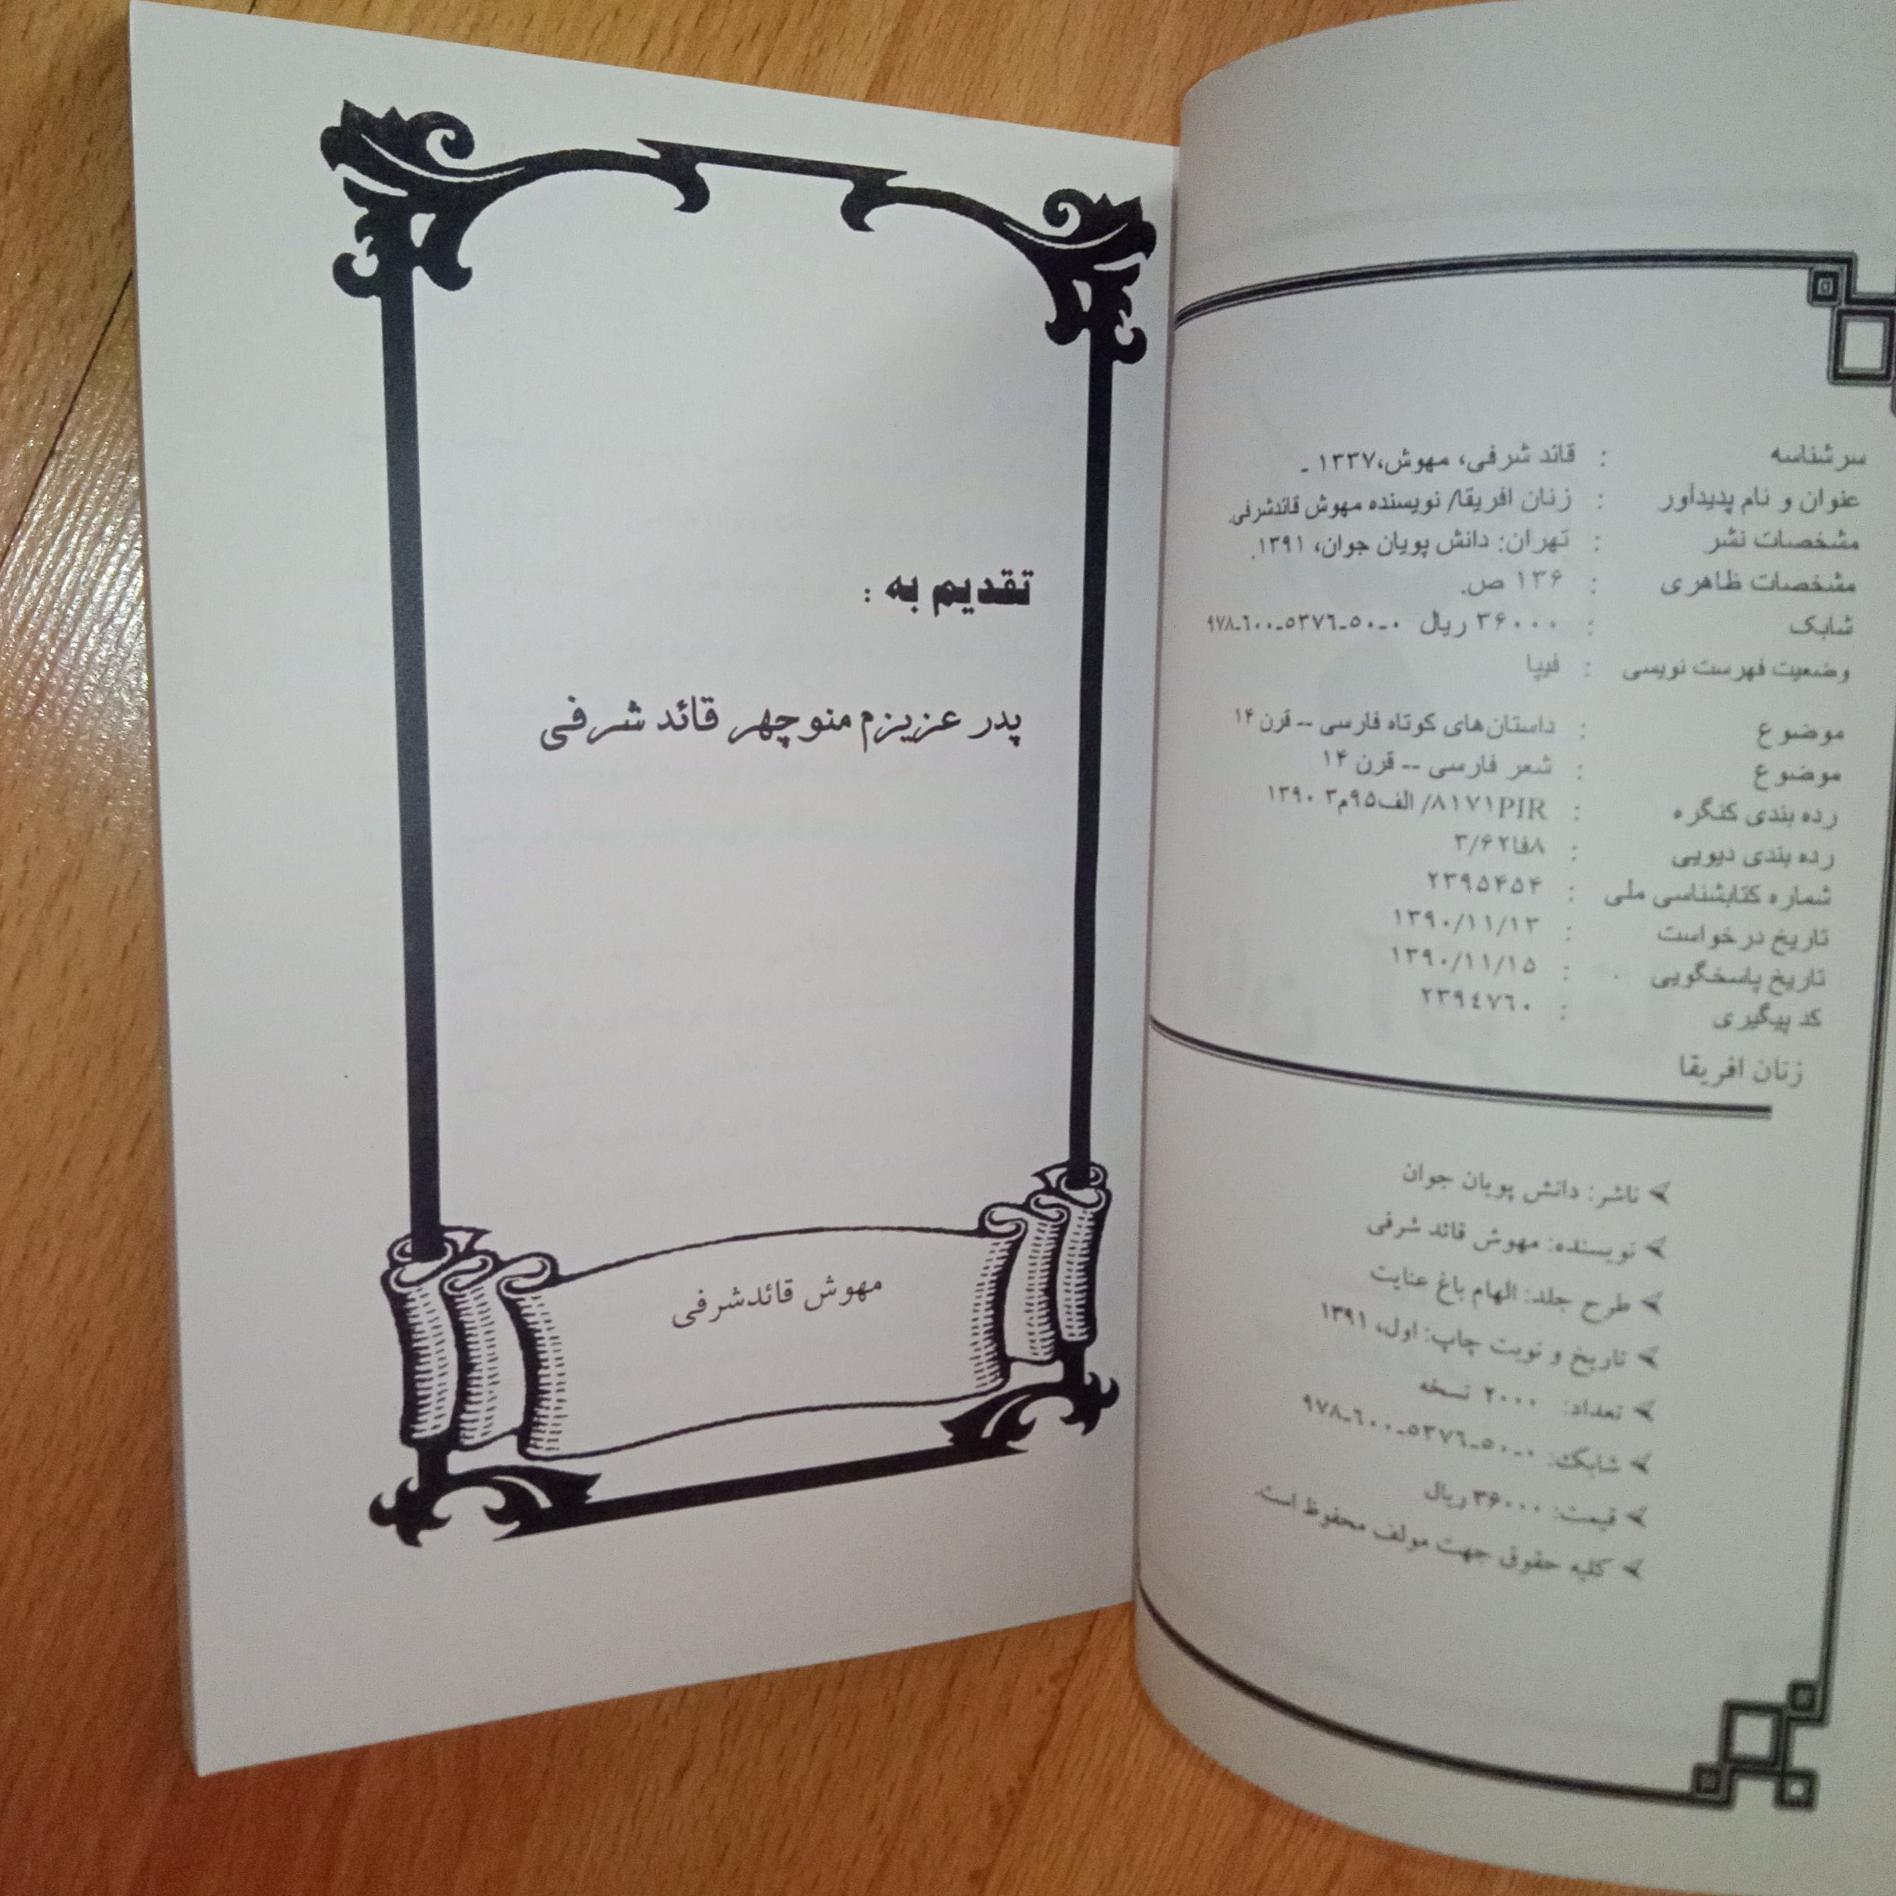 سرشناسه : قائد شرفی، مهوش،۱۳۳۷ ـ
عنوان و نام پدیدآور : زنان افریقا/ نویسنده مهوش قائدشرفی.
مشخصات نشر : تهران: دانش پویان جوان، ۱۳۹۱.
مشخصات ظاهری : ۱۳۶ ص.
شابک : ۳۶۰۰۰ ریال ۰ـ۵۰ـ۵۳۷٦ـ٦۰۰ـ۹۷۸
وضعیت فهرست نویسی : فیپا
موضوع : داستان‌های کوتاه فارسی -- قرن ۱۴
موضوع : شعر فارسی -- قرن ۱۴
رده بندی کنگره : ۸۱۷۱PIR/ الف۹۵م۳ ۱۳۹۰
رده بندی دیویی : ۸فا۳/۶۲
شماره کتابشناسی ملی : ۲۳۹۵۴۵۴
تاریخ درخواست : ۱۳۹۰/۱۱/۱۳
تاریخ پاسخگویی : ۱۳۹۰/۱۱/۱۵
کد پیگیری : ۲۳۹٤۷٦۰
زنان افریقا
ناشر: دانش پویان جوان
نویسنده: مهوش قائد شرفی
طرح جلد: الهام باغ عنایت
تاریخ و نوبت چاپ: اول، ۱۳۹۱
تعداد: ۲۰۰۰ نسخه
شابک: ۰ـ۵۰ـ۵۳۷٦ـ٦۰۰ـ۹۷۸
قیمت: ۳۶۰۰۰ ریال
کلیه حقوق جهت مولف محفوظ است.
تقدیم به :
پدر عزیزم منوچهر قائد شرفی
مهوش قائدشرفی